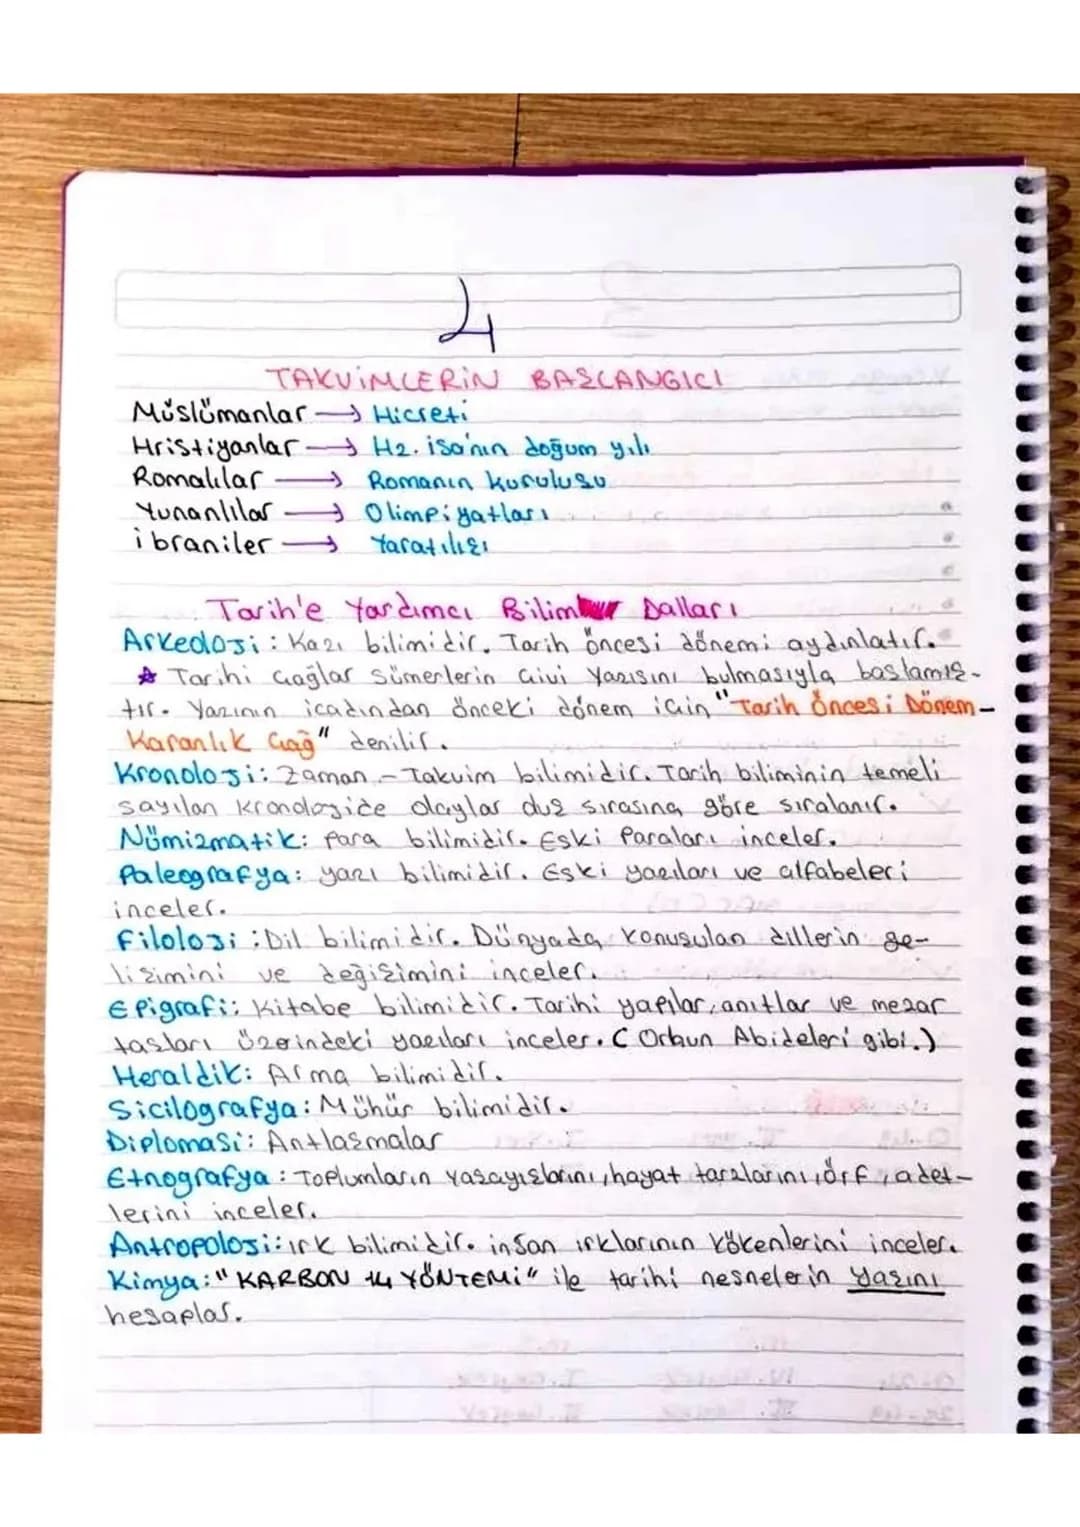 4
TAKVİMLERİN BAŞLANGICI
Müslümanlar → Hicreti
Hristiyanlar → Hz. isa'nın doğum yılı
Romalılar → Romanın kuruluşu
Yunanlılar → Olimpiyatları
ibraniler → Yaratılışı
Tarih'e Yardımcı Bilim Dalları
Arkedoji: Kazı bilimidir. Tarih öncesi dönemi aydınlatır.
☆ Tarihi çağlar Sümerlerin Çivi Yazısını bulmasıyla başlamış-
tır. Yazının icadından önceki dönem için "Tarih Öncesi Dönem-
Karanlık Çağ" denilir.
Kronoloji: Zaman - Takvim bilimidir. Tarih biliminin temeli
sayılan kronolojide olaylar oluş sırasına göre sıralanır.
Nümizmatik: Para bilimidir. Eski Paraları inceler.
Paleografya: yazı bilimidir. Eski yazıları ve alfabeleri
inceler.
Filoloji: Dil bilimidir. Dünyada konuşulan dillerin ge-
lişimini ve değişimini inceler.
Epigrafi: Kitabe bilimidir. Tarihi yapılar, anıtlar ve mezar
taşları üzerindeki yazıları inceler. (Orhun Abideleri gibi.)
Heraldik: Arma bilimidir.
Sicilografya: Mühür bilimidir.
Diplomasi: Antlaşmalar
Etnografya: Toplumların yaşayışlarını, hayat tarzlarını, örf, adet-
lerini inceler.
Antropoloji: ırk bilimidir. insan ırklarının kökenlerini inceler.
Kimya: "KARBON 14 YÖNTEMİ" ile tarihi nesnelerin yaşını
hesaplar.